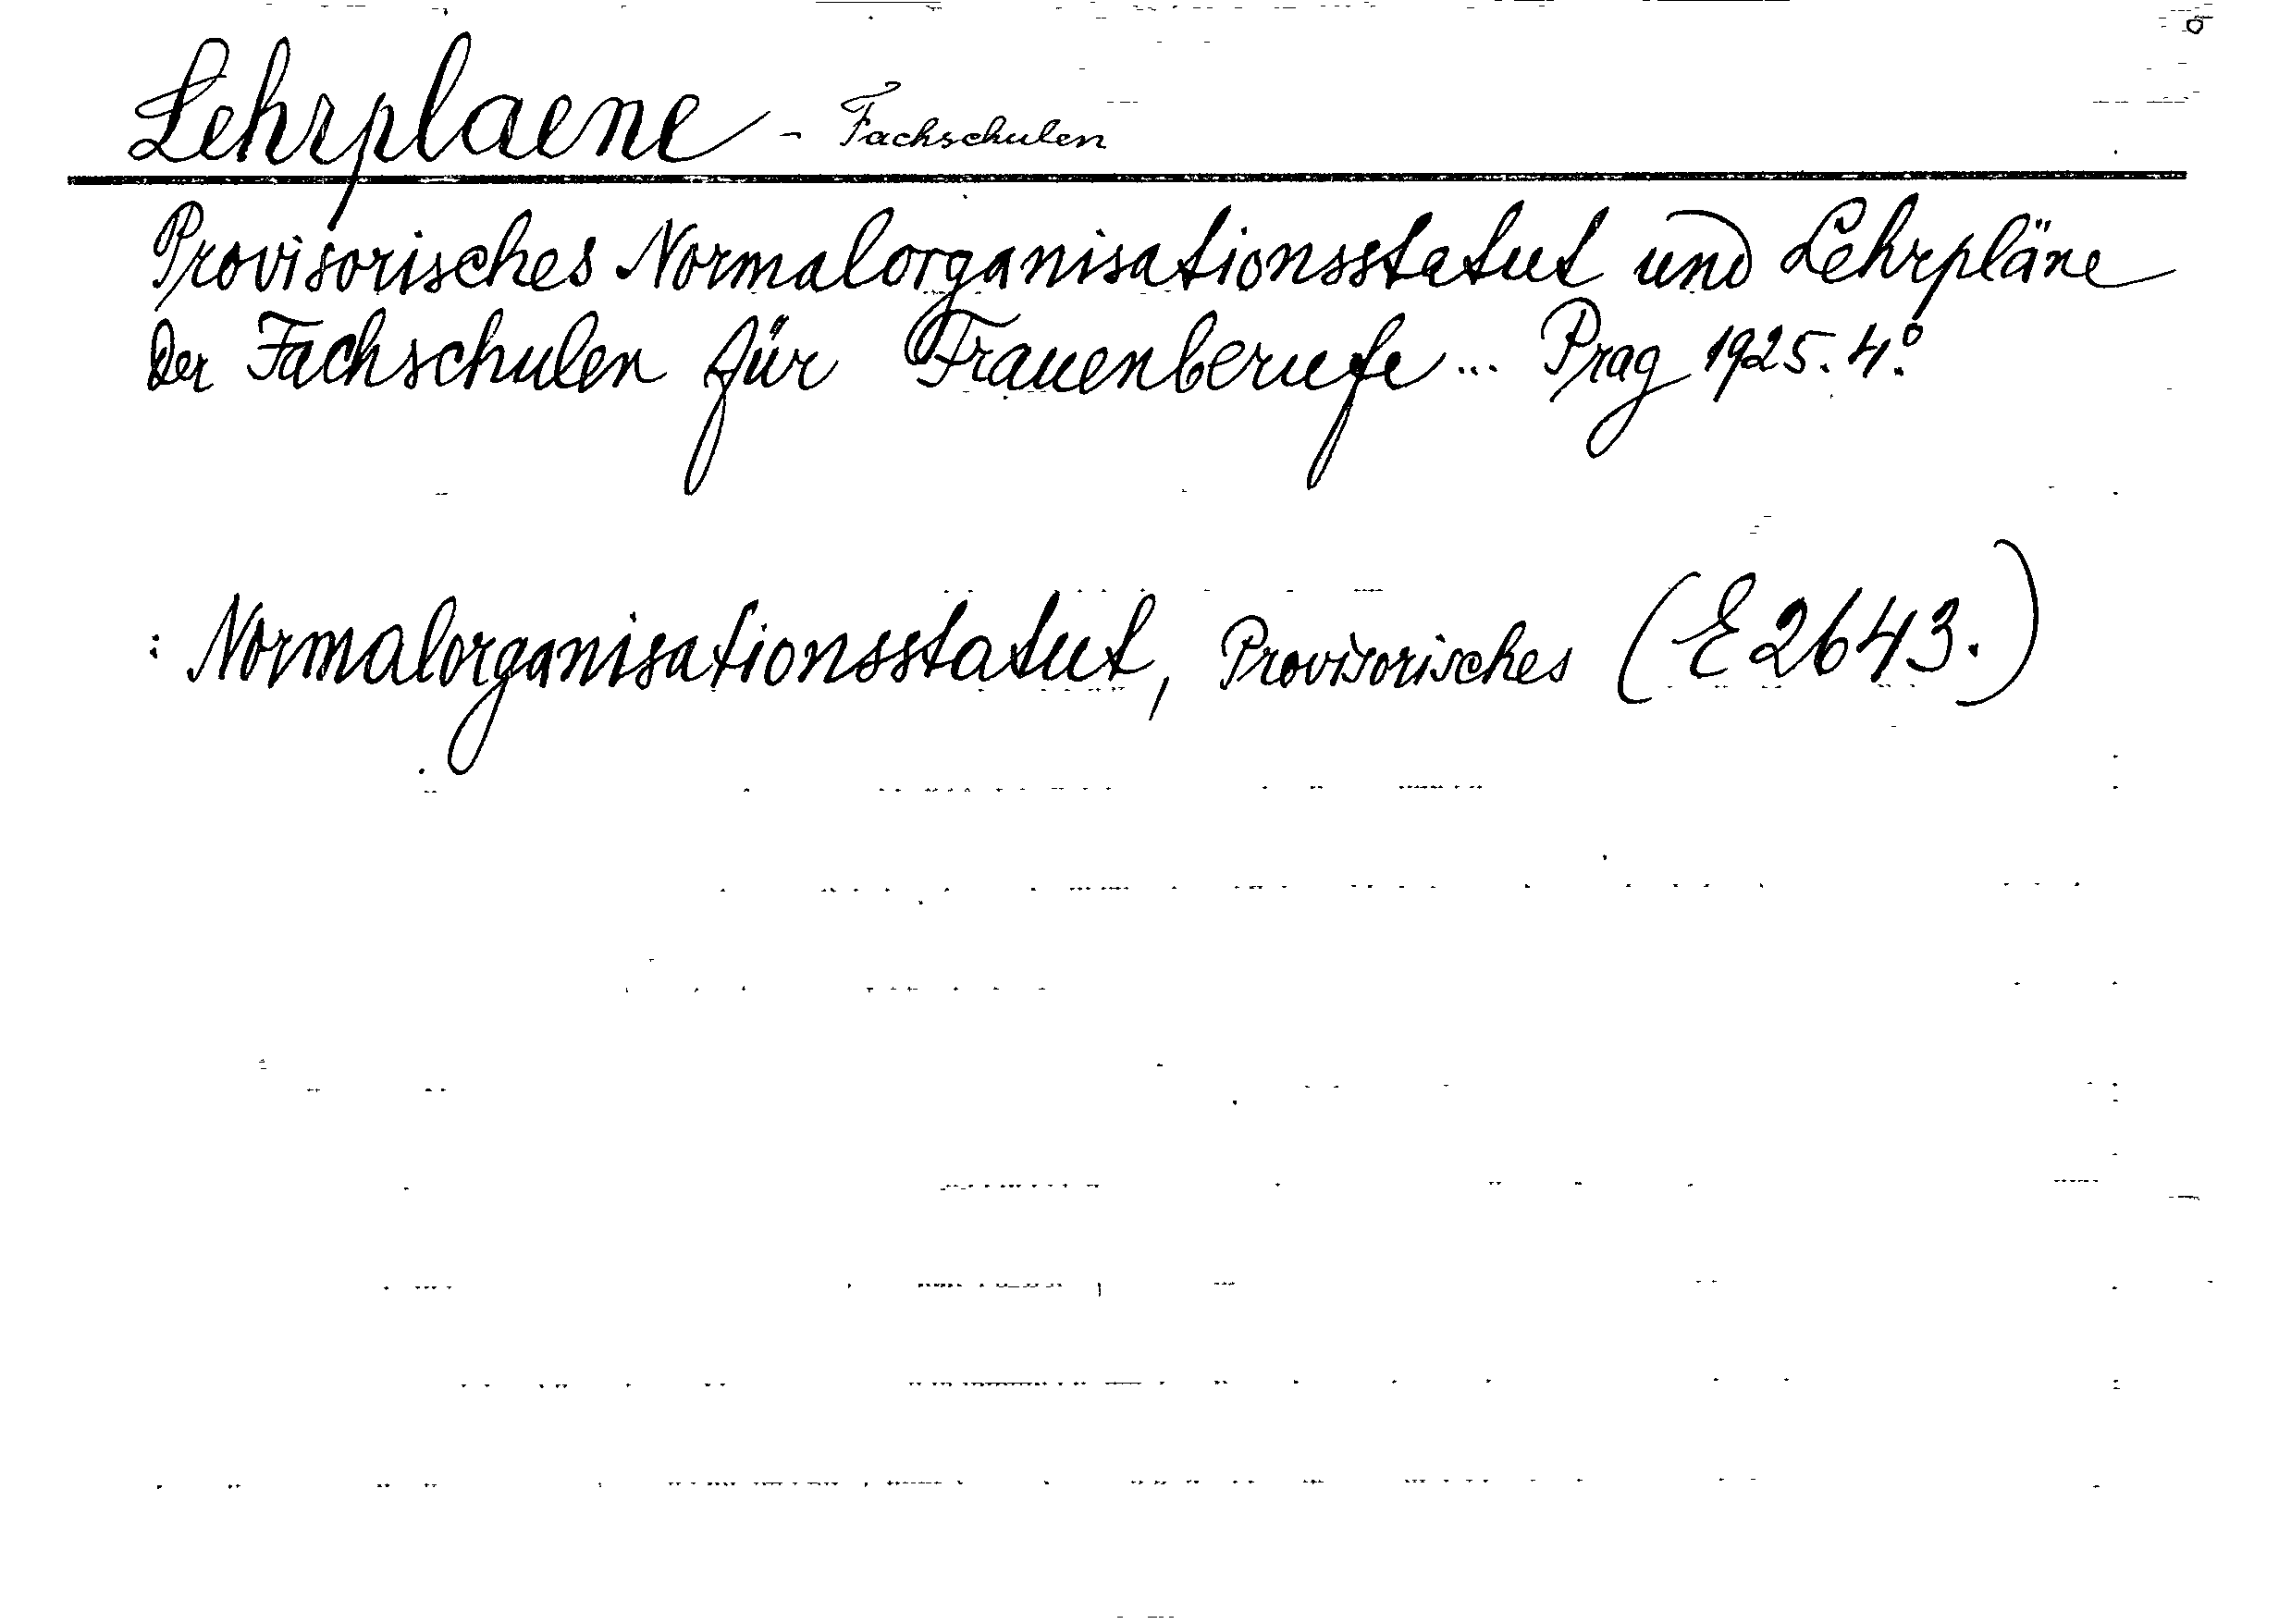 Lehrplaene - Fachschulen
Provisorisches Normalorganisationsstatut und Lehrpläne
der Fachschulen für Frauenberufe ... Prag 1925. 4.°
: Normalorganisationsstatut, Provisorisches (E 2643.)